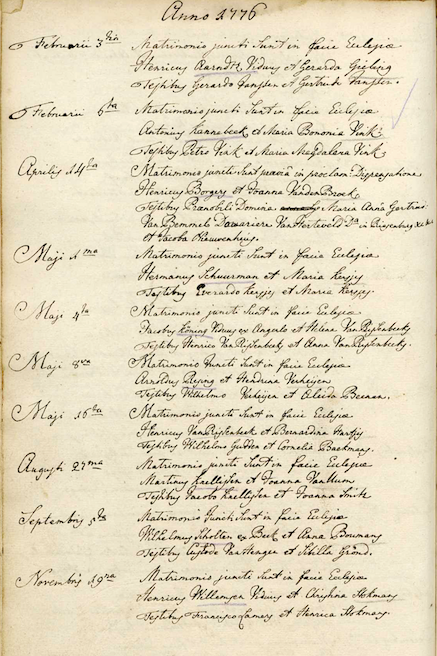 Anno 1776
Februarii 5ta Matrimonio juncti Sunt in facie Eclesiæ
Henricus Aerndts Viduus et Gerarda Gieling
Testibus Gerardo Janssen et Gertrudi Janssen.
Februarii 6ta Matrimonio juncti Sunt in facie Eclesiæ
Antonius Kannebeek et Maria Bononia Vink
Testibus Petro Vink et Maria Magdalena Vink
Aprilis 14ta Matrimonio juncti Sunt in proclam: Dispensatione
Henricus Borgers et Joanna VandenBroek
Testibus Prænobili Domina Maria Anna Gertrudis
Van Bemmele Van
et Jacoba Nieuwenhuys.
Maji 1ma Matrimonio juncti Sunt in facie Eclesiæ
Hermanus Schuurman et Maria
Testibus Everardo et Maria
Maji 4ta Matrimonio juncti Sunt in facie Eclesiæ
Jacobus Koning Viduus ex Angulo et Helena Van Rijssenbeek
Testibus Henrico Van Rijssenbeek et Anna Van Rijssenbeek.
Maji 8va Matrimonio Juncti Sunt in facie Eclesiæ
Arnoldus et Hendrina Verheijen
Testibus Wilhelmo Verheijen et Aleida
Maji 16ta Matrimonio juncti Sunt in facie Eclesiæ
Henricus Van Rijssenbeek et Bernardina
Testibus Wilhelmo Gudden et Cornelia
Augusti 27ma Matrimonio juncti Sunt in facie Eclesiæ
Martinus Knellissen et Joanna
Testibus Jacobo Knellissen et Joanna Smits
Septembris 5ta Matrimonio Juncti Sunt in facie Eclesiæ
Wilhelmus Scholten ex Beek et Anna Boumans
Testibus Custode et Sibilla
Novembris 19na Matrimonio juncti Sunt in facie Eclesiæ
Henricus Willemsen Viduus et Christina Hokmans
Testibus Francisco Lamers et Henrica Hokmans.